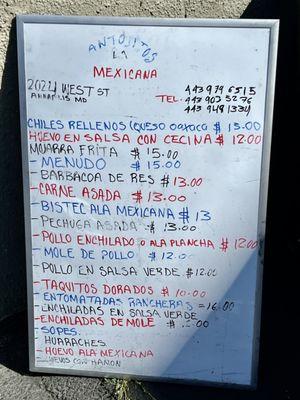 ANTOJITOS
LA
MEXICANA
2024 WEST ST
ANNAPOLIS MD
443 979 6515
TEL. 443 903 5276
443 948 1334
CHILES RELLENOS (QUESO OAXACO $ 15.00
HUEVO EN SALSA CON CECINA $ 12.00
MOJARRA FRITA $ 15.00
- MENUDO $ 15.00
- BARBACOA DE RES $ 13.00
- CARNE ASADA $ 13.00
- BISTEC ALA MEXICANA $ 13
PECHUGA ASADA $ 13.00
- POLLO ENCHILADO O ALA PLANCHA $ 12.00
- MOLE DE POLLO $ 12.00
- POLLO EN SALSA VERDE $ 12.00
- TAQUITOS DORADOS $ 10.00
- ENTOMATADAS RANCHERAS =
- ENCHILADAS EN SALSA VERDE
- ENCHILADAS DE MOLE $
- SOPES
- HUARACHES
- HUEVO ALA MEXICANA
- HUEVOS CON